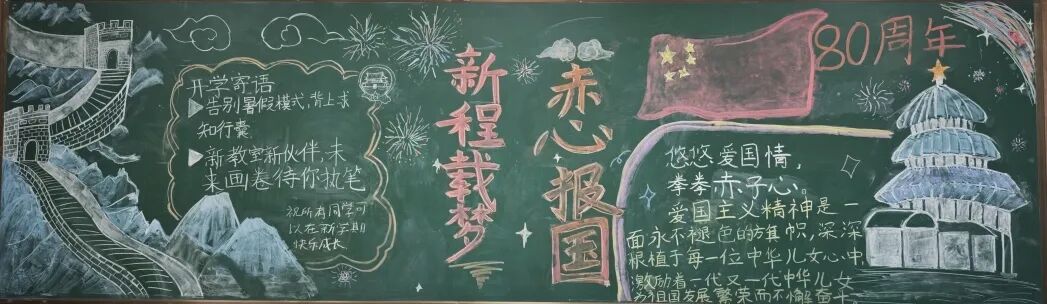 开学寄语
告别暑假模式,背上求
知行囊
新教室新伙伴,未
来画卷待你执笔
祝所有同学可
以在新学期
快乐成长
新程载梦
赤心报国
80周年
悠悠爱国情,
拳拳赤子心。
爱国主义精神是一
面永不褪色的旗帜,深深
根植于每一位中华儿女心中,
激励着一代又一代中华儿女
为祖国发展繁荣而不懈奋斗